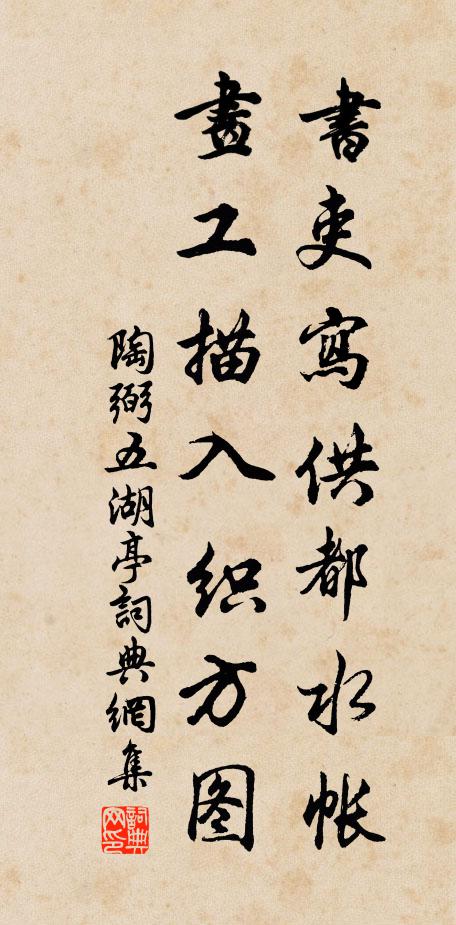 書吏寫供都水帳
畫工描入织方图
陶弼五湖亭詞典網集
詞典网印